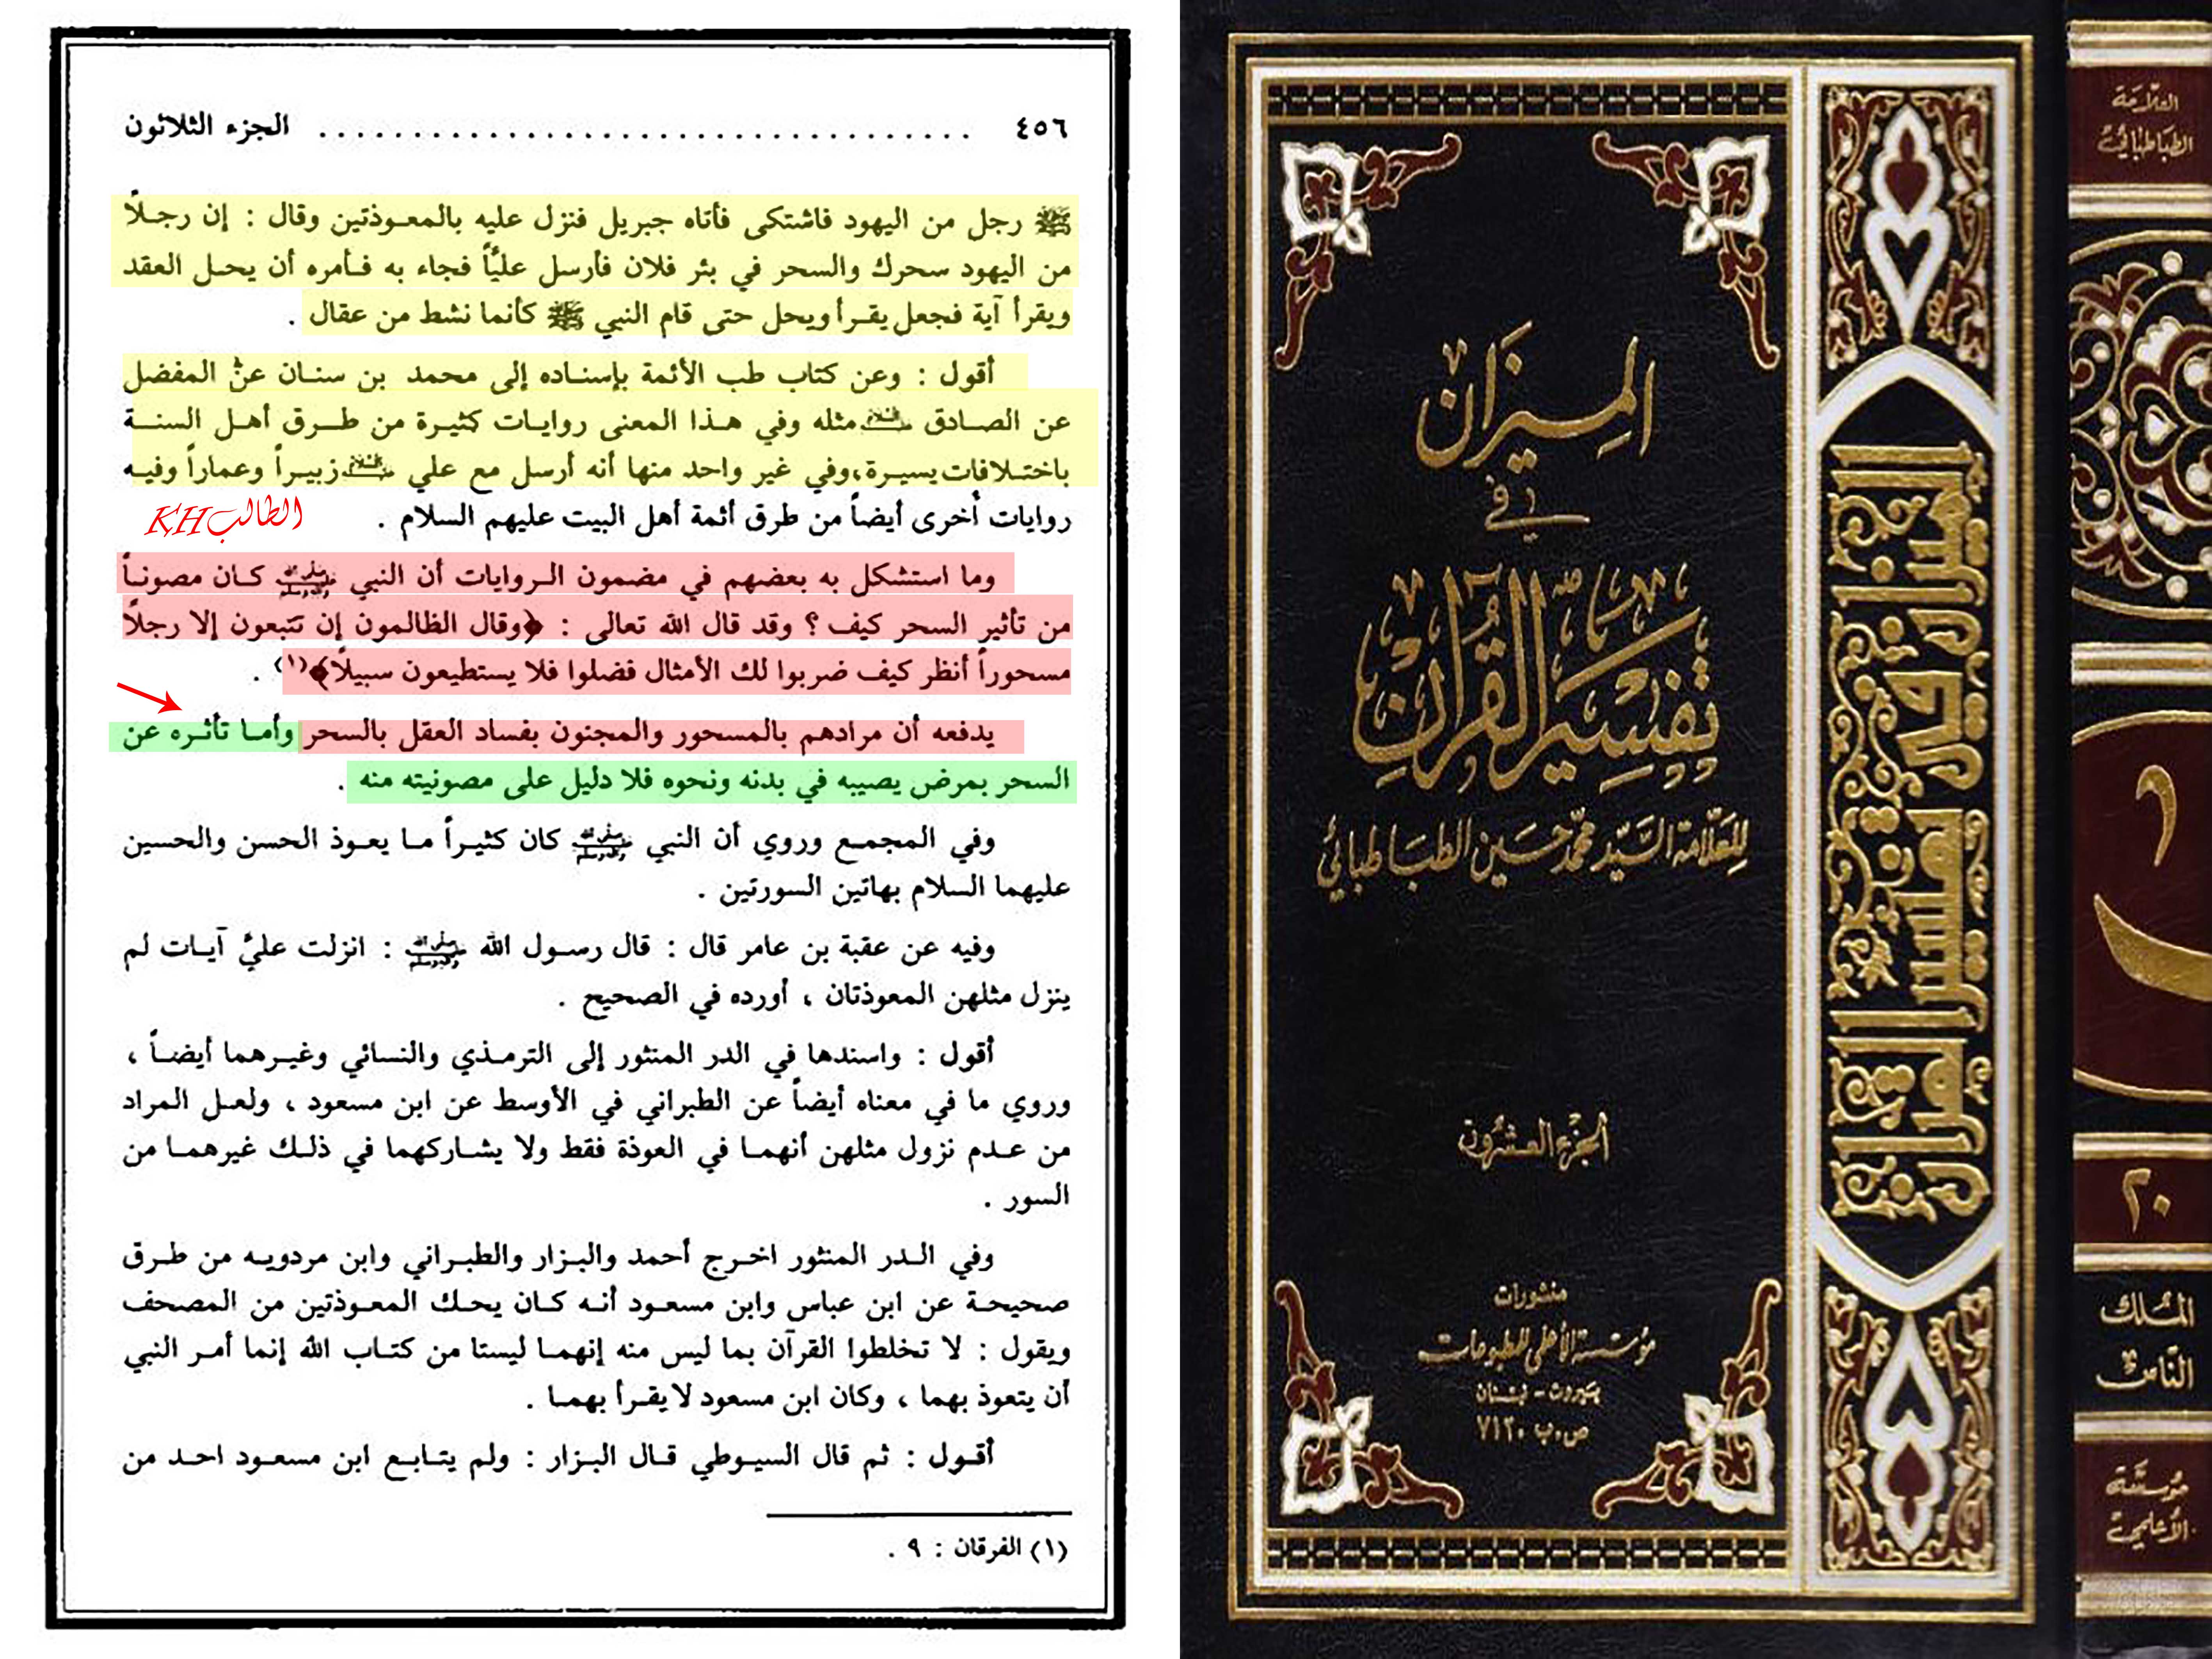 ٤٥٦ ........................................ الجزء الثلاثون
ﷺ رجل من اليهود فاشتكى فأتاه جبريل فنزل عليه بالمعـوذتين وقال : إن رجـلاً
من اليهود سحرك والسحر في بئر فلان فأرسل عليّاً فجاء به فـأمره أن يحـل العقد
ويقرأ آية فجعل يقـرأ ويحل حتى قام النبي ﷺ كأنما نشط من عقال .
أقول : وعن كتاب طب الأئمة بإسنـاده إلى محمد بن سنـان عن المفضل
عن الصـادق عليه السلام مثله وفي هـذا المعنى روايـات كثيـرة من طـرق أهـل السنـة
باختـلافات يسيـرة، وفي غير واحد منها أنه أرسل مع علي عليه السلام زبيـراً وعماراً وفيـه
روايات أخرى أيضاً من طرق أئمة أهل البيت عليهم السلام .
الطالب KH
وما استشكل به بعضهم في مضمون الـروايات أن النبي صلى الله عليه وآله وسلم كـان مصونـاً
من تأثير السحر كيف ؟ وقد قال الله تعالى : ﴿وقال الظالمون إن تتبعون إلا رجلاً
مسحوراً أنظر كيف ضربوا لك الأمثال فضلوا فلا يستطيعون سبيلاً﴾(١) .
يدفعه أن مرادهم بالمسحور والمجنون بفساد العقل بالسحر وأمـا تأثـره عن
السحر بمرض يصيبه في بدنه ونحوه فلا دليل على مصونيته منه .
وفي المجمـع وروي أن النبي صلى الله عليه وآله وسلم كان كثيـراً مـا يعـوذ الحسن والحسين
عليهما السلام بهاتين السورتين .
وفيه عن عقبة بن عامر قال : قال رسـول الله صلى الله عليه وآله وسلم : انزلت عليّ آيـات لم
ينزل مثلهن المعوذتان ، أورده في الصحيح .
أقول : واسندها في الدر المنثور إلى الترمـذي والنسائي وغيـرهما أيضـاً ،
وروي ما في معناه أيضاً عن الطبراني في الأوسط عن ابن مسعود ، ولعـل المراد
من عـدم نزول مثلهن أنهمـا في العوذة فقط ولا يشـاركهما في ذلـك غيرهمـا من
السور .
وفي الـدر المنثور اخـرج أحمد والبـزار والطبـراني وابن مردويـه من طـرق
صحيحـة عن ابن عباس وابن مسعـود أنـه كـان يحـك المعـوذتين من المصحف
ويقول : لا تخلطوا القرآن بما ليس منه إنهمـا ليستا من كتـاب الله إنما أمـر النبي
أن يتعوذ بهما ، وكان ابن مسعود لا يقـرأ بهمـا .
أقـول : ثم قال السيـوطي قـال البـزار : ولم يتـابـع ابن مسعـود احـد من
(١) الفرقان : ٩ .
الميزان
في
تفسير القرآن
للعلامة السيد محمد حسين الطباطبائي
الجزء العشرون
منشورات
مؤسسة الأعلمي للمطبوعات
بيروت - لبنان
ص.ب ٧١٢٠
الميزان في تفسير القرآن
العلامة
الطباطبائي
٢٠
الملك
الناس
مؤسسة
الأعلمي